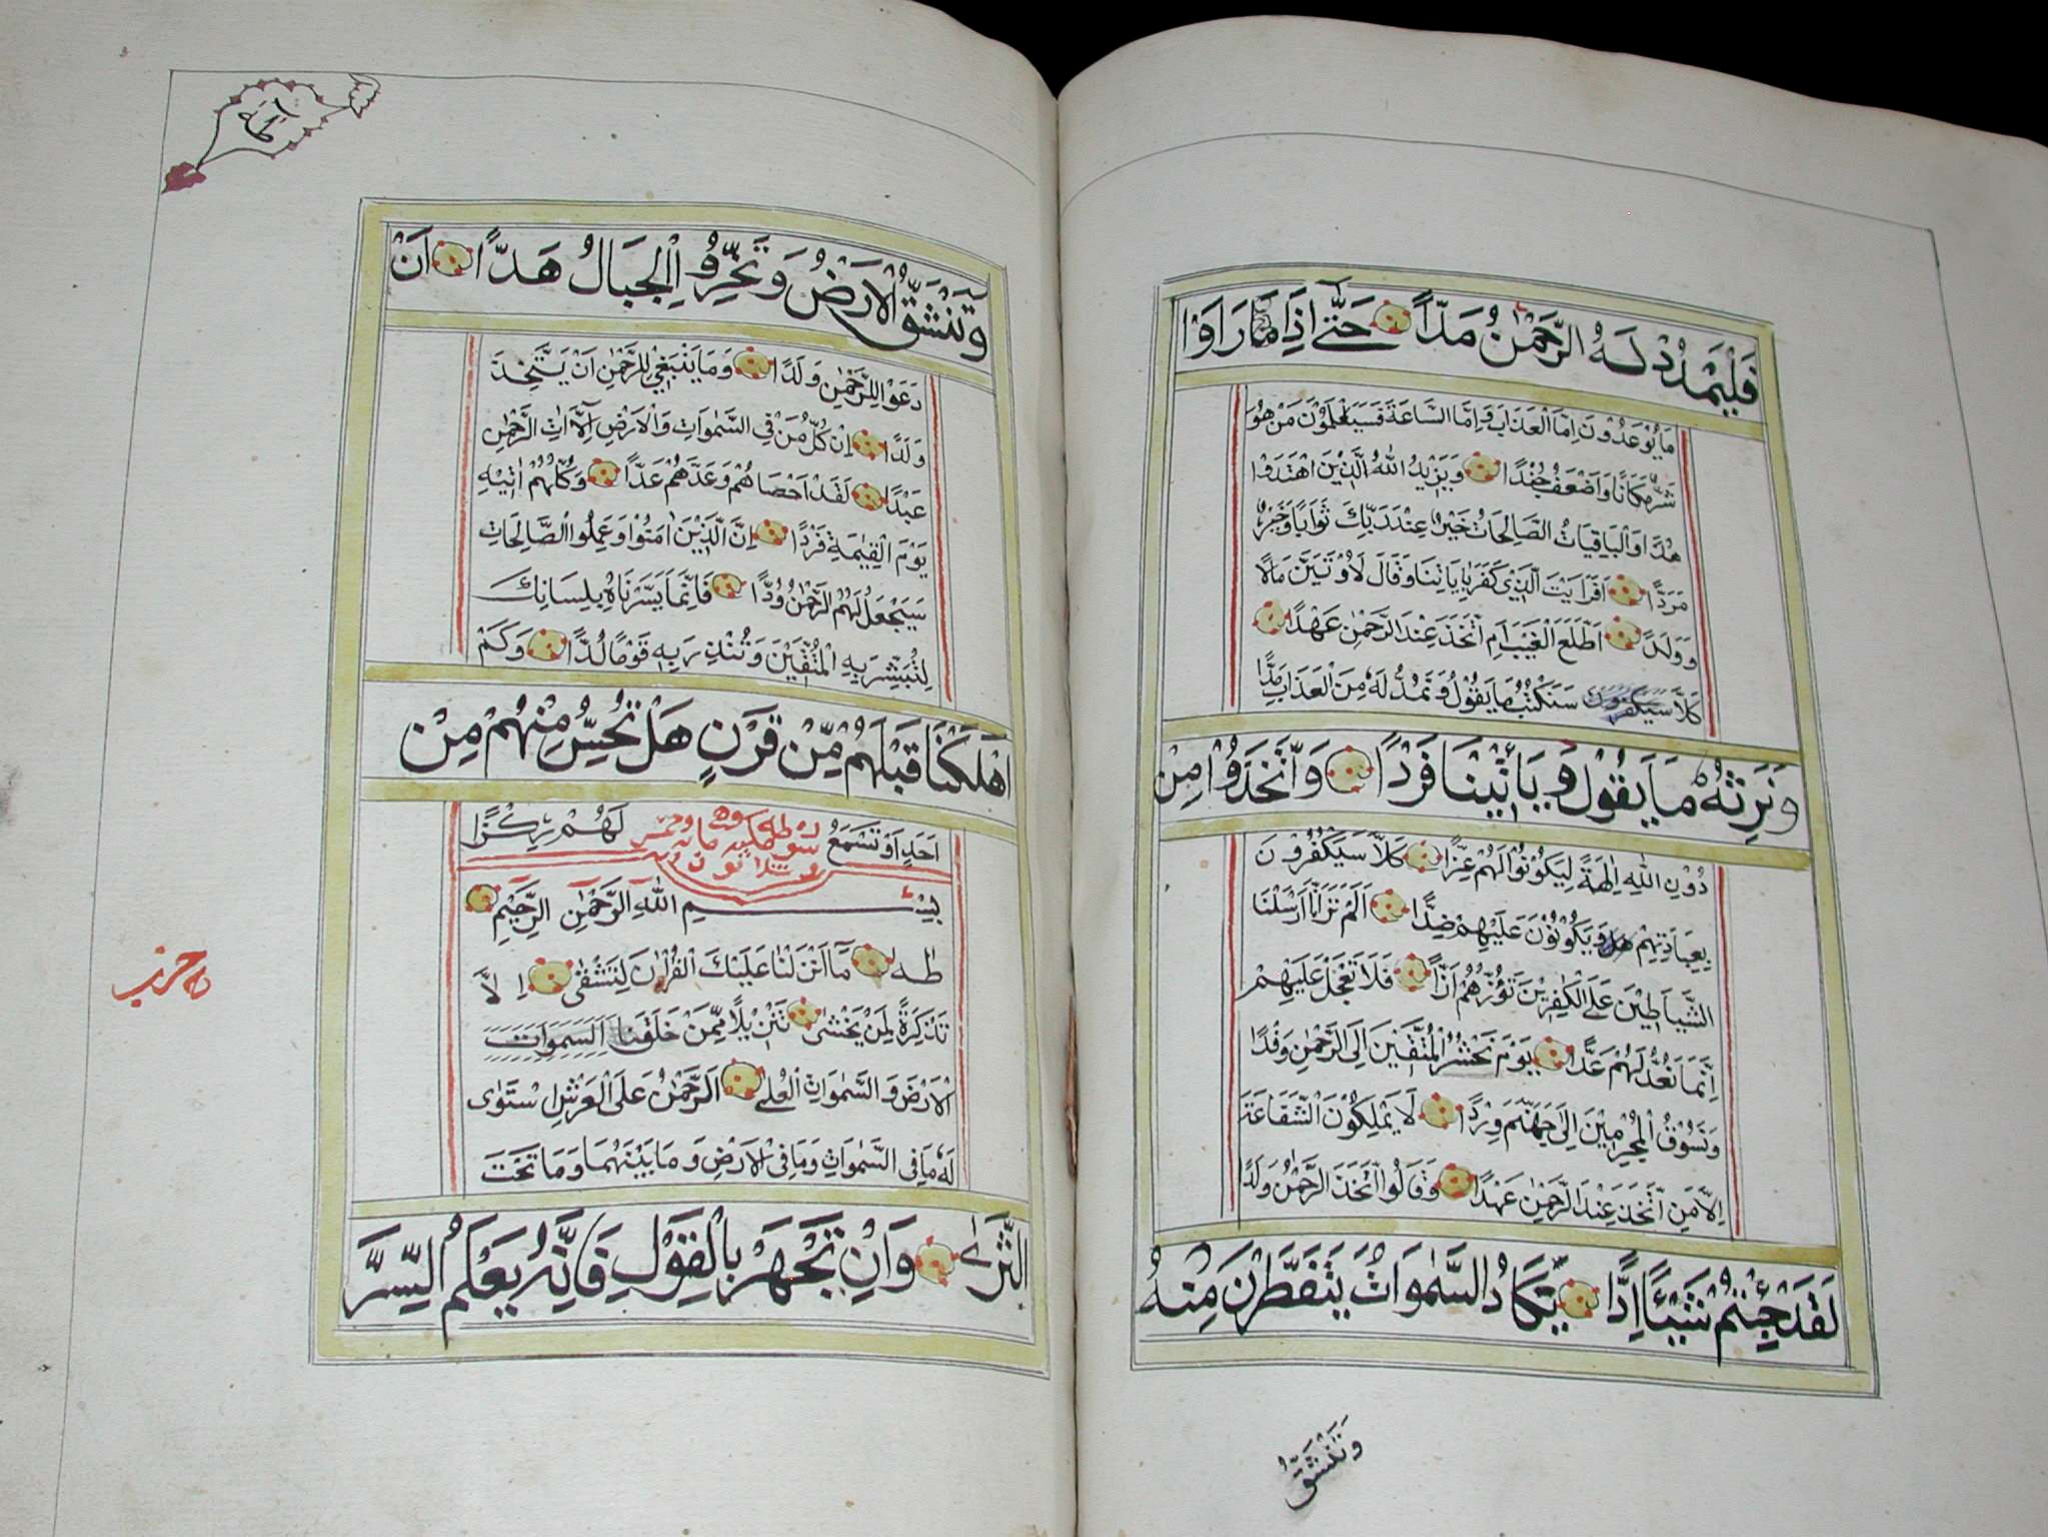 فَلْيَمْدُدْ لَهُ الرَّحْمٰنُ مَدًّا حَتّٰى اِذَا مَا رَاَوْا
مَا يُوعَدُونَ اِمَّا الْعَذَابَ وَاِمَّا السَّاعَةَ فَسَيَعْلَمُوْنَ مَنْ هُوَ
شَرٌّ مَكَانًا وَاَضْعَفُ جُنْدًا وَيَزِيْدُ اللّٰهُ الَّذِيْنَ اهْتَدَوْا
هُدًا وَالْبَاقِيَاتُ الصَّالِحَاتُ خَيْرٌ عِنْدَ رَبِّكَ ثَوَابًا وَخَيْرٌ
مَرَدًّا اَفَرَاَيْتَ الَّذِىْ كَفَرَ بِاٰيَاتِنَا وَقَالَ لَاُوْتَيَنَّ مَالًا
وَوَلَدًا اَطَّلَعَ الْغَيْبَ اَمِ اتَّخَذَ عِنْدَ الرَّحْمٰنِ عَهْدًا
كَلَّا سَيَكْفُرُوْنَ سَنَكْتُبُ مَا يَقُوْلُ وَنَمُدُّ لَهُ مِنَ الْعَذَابِ مَدًّا
وَنَرِثُهُ مَا يَقُوْلُ وَيَاْتِيْنَا فَرْدًا وَاتَّخَذُوْا مِنْ
دُوْنِ اللّٰهِ اٰلِهَةً لِيَكُوْنُوْا لَهُمْ عِزًّا كَلَّا سَيَكْفُرُوْنَ
بِعِبَادَتِهِمْ وَيَكُوْنُوْنَ عَلَيْهِمْ ضِدًّا اَلَمْ تَرَ اَنَّا اَرْسَلْنَا
الشَّيَاطِيْنَ عَلَى الْكٰفِرِيْنَ تَؤُزُّهُمْ اَزًّا فَلَا تَعْجَلْ عَلَيْهِمْ
اِنَّمَا نَعُدُّ لَهُمْ عَدًّا يَوْمَ نَحْشُرُ الْمُتَّقِيْنَ اِلَى الرَّحْمٰنِ وَفْدًا
وَنَسُوْقُ الْمُجْرِمِيْنَ اِلَى جَهَنَّمَ وِرْدًا لَا يَمْلِكُوْنَ الشَّفَاعَةَ
اِلَّا مَنِ اتَّخَذَ عِنْدَ الرَّحْمٰنِ عَهْدًا وَقَالُوا اتَّخَذَ الرَّحْمٰنُ وَلَدًا
لَقَدْ جِئْتُمْ شَيْئًا اِدًّا تَكَادُ السَّمٰوَاتُ يَتَفَطَّرْنَ مِنْهُ
وَتَنْشَقُّ
وَتَنْشَقُّ الْاَرْضُ وَتَخِرُّ الْجِبَالُ هَدًّا اَنْ
دَعَوْا لِلرَّحْمٰنِ وَلَدًا وَمَا يَنْبَغِىْ لِلرَّحْمٰنِ اَنْ يَتَّخِذَ
وَلَدًا اِنْ كُلُّ مَنْ فِى السَّمٰوَاتِ وَالْاَرْضِ اِلَّا اٰتِ الرَّحْمٰنِ
عَبْدًا لَقَدْ اَحْصَاهُمْ وَعَدَّهُمْ عَدًّا وَكُلُّهُمْ اٰتِيْهِ
يَوْمَ الْقِيٰمَةِ فَرْدًا اِنَّ الَّذِيْنَ اٰمَنُوْا وَعَمِلُوا الصَّالِحَاتِ
سَيَجْعَلُ لَهُمُ الرَّحْمٰنُ وُدًّا فَاِنَّمَا يَسَّرْنَاهُ بِلِسَانِكَ
لِتُبَشِّرَ بِهِ الْمُتَّقِيْنَ وَتُنْذِرَ بِهِ قَوْمًا لُدًّا وَكَمْ
اَهْلَكْنَا قَبْلَهُمْ مِّنْ قَرْنٍ هَلْ تُحِسُّ مِنْهُمْ مِنْ
اَحَدٍ اَوْ تَسْمَعُ لَهُمْ رِكْزًا
بِسْمِ اللّٰهِ الرَّحْمٰنِ الرَّحِيْمِ
طٰهٰ مَا اَنْزَلْنَا عَلَيْكَ الْقُرْاٰنَ لِتَشْقٰى اِلَّا
تَذْكِرَةً لِمَنْ يَخْشٰى تَنْزِيْلًا مِمَّنْ خَلَقَ السَّمٰوَاتِ
الْاَرْضَ وَالسَّمٰوَاتِ الْعُلٰى اَلرَّحْمٰنُ عَلَى الْعَرْشِ اسْتَوٰى
لَهُ مَا فِى السَّمٰوَاتِ وَمَا فِى الْاَرْضِ وَمَا بَيْنَهُمَا وَمَا تَحْتَ
الثَّرٰى وَاِنْ تَجْهَرْ بِالْقَوْلِ فَاِنَّهُ يَعْلَمُ السِّرَّ
حزب